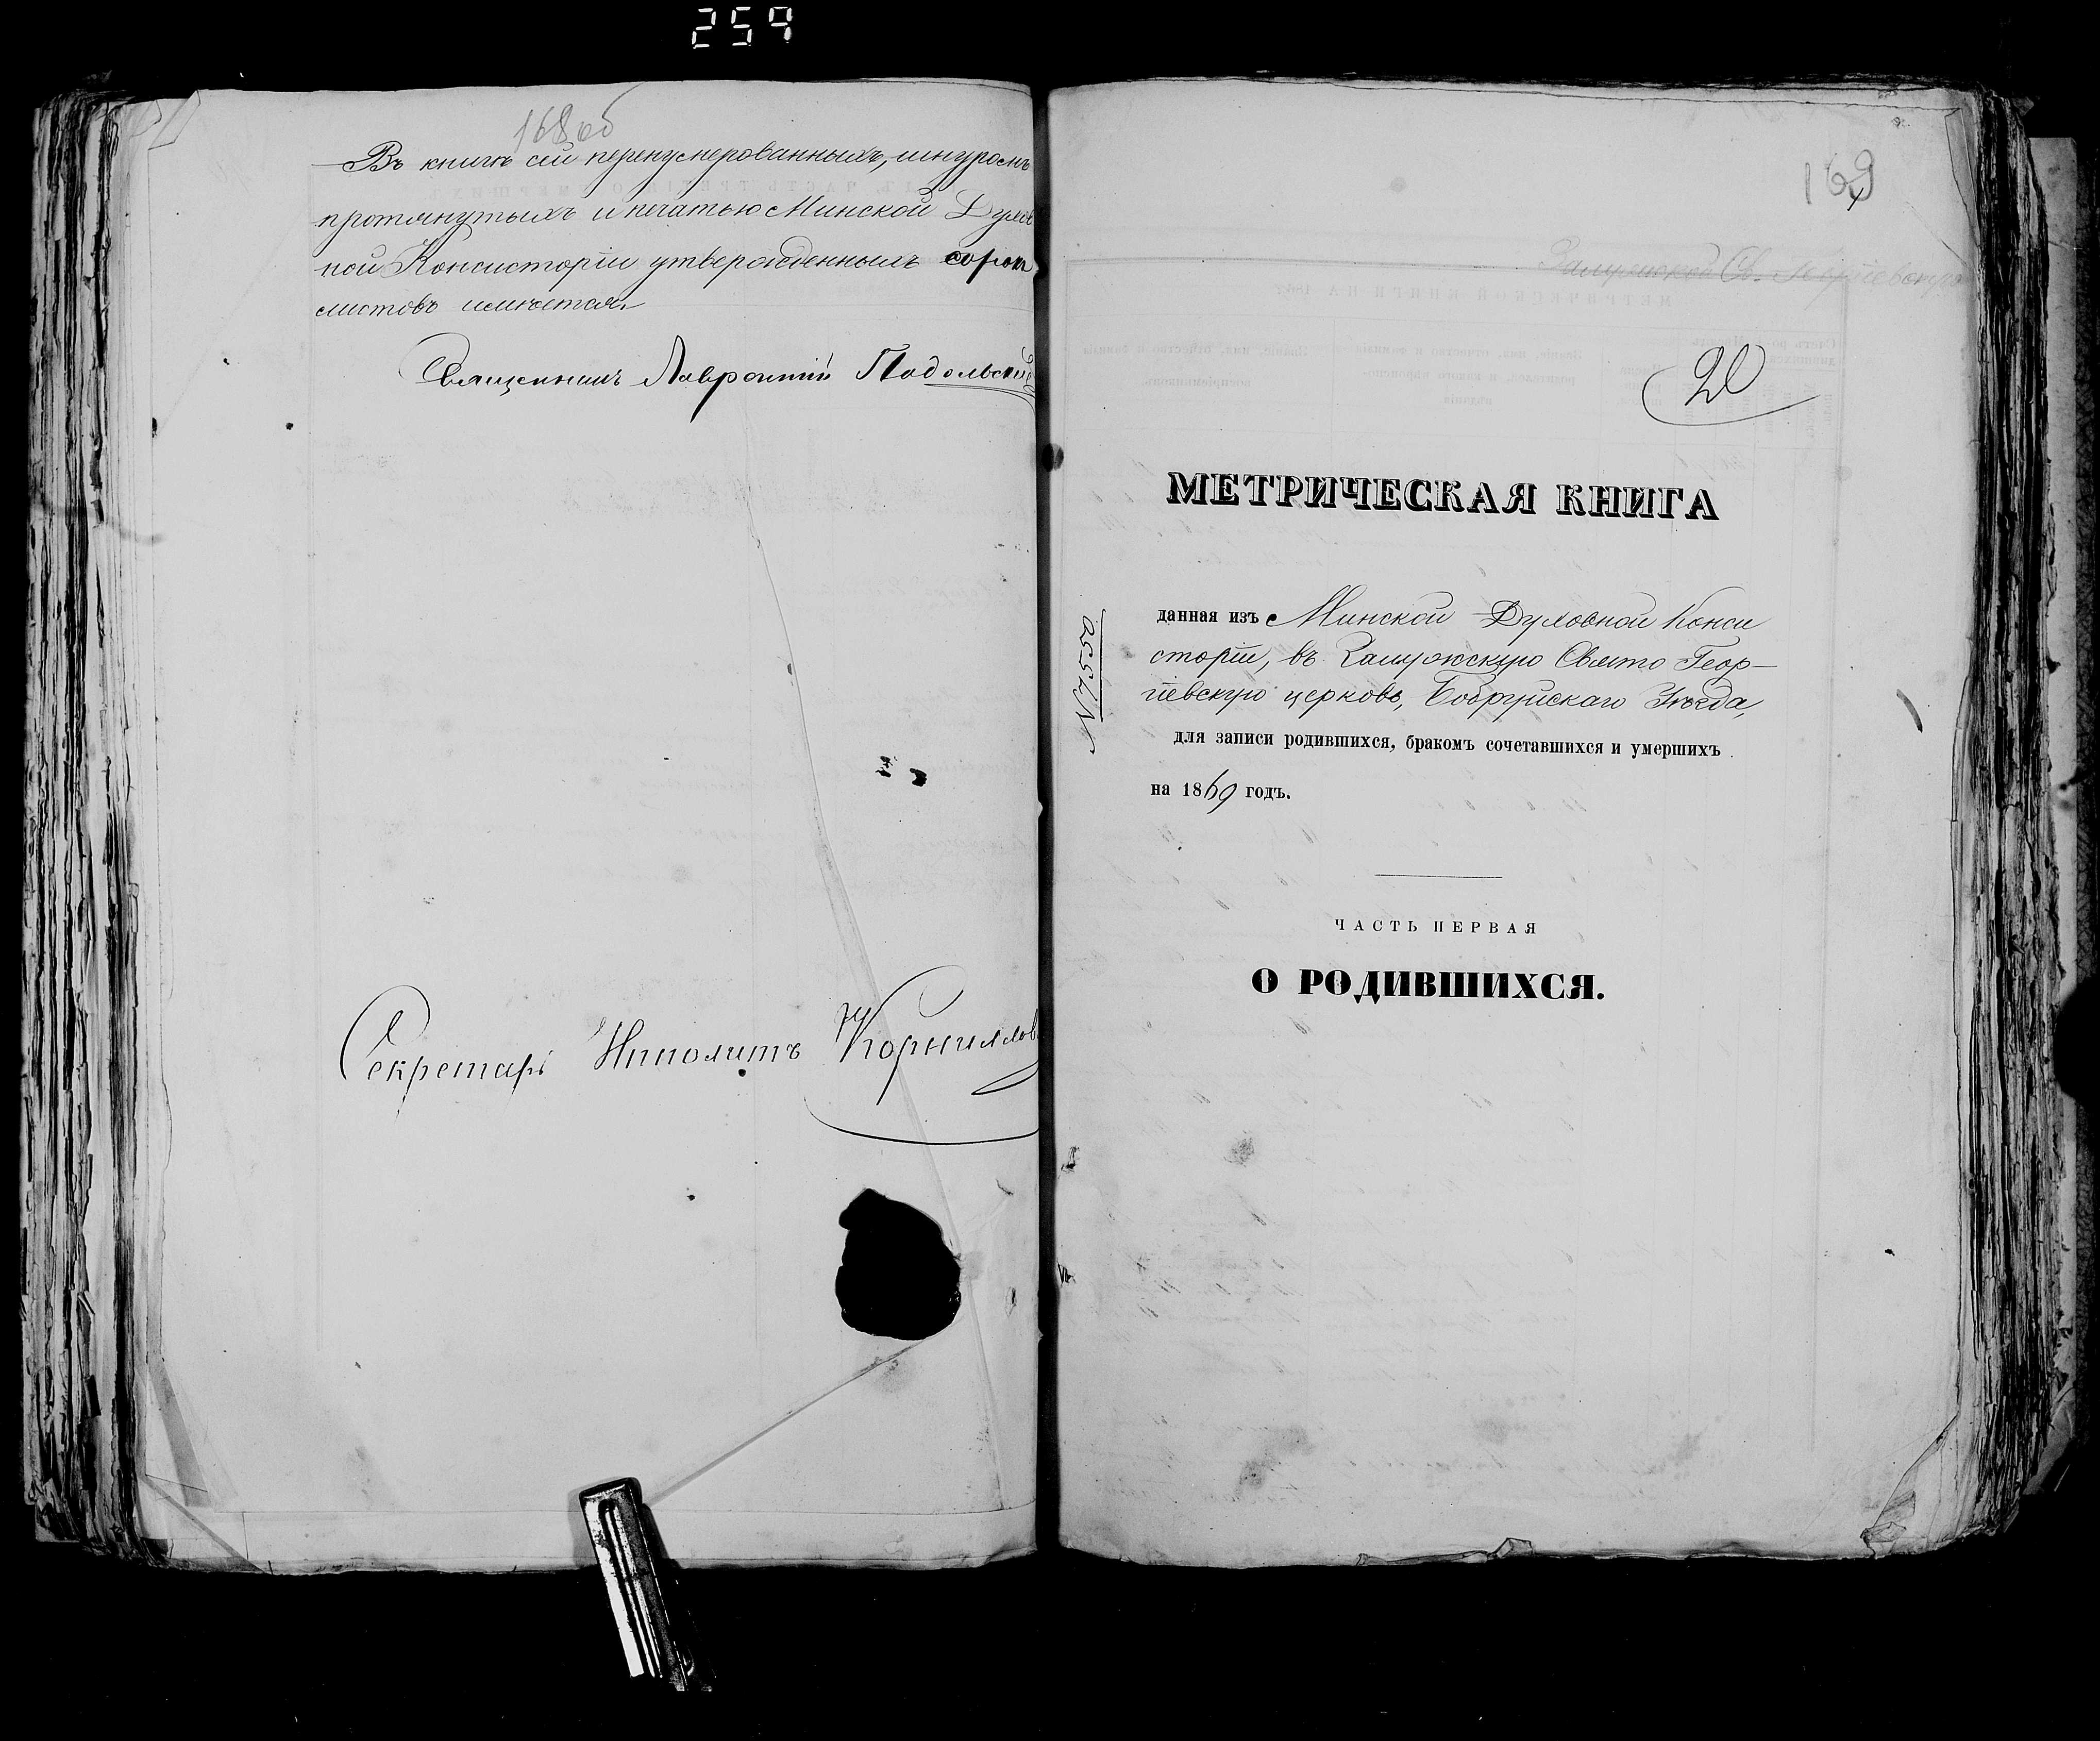 259
168 об
Въ книгѣ сей перенумерованныхъ, шнуромъ
протянутыхъ и печатью Минской Духов
ной Консисторіи утвержденныхъ сорок
листовъ имѣется.
Священникъ Лаврентій Подольскій
Секретарь Ипполитъ Корниллов
169
Св. Георгіевскую
20
МЕТРИЧЕСКАЯ КНИГА
№ 7550
данная изъ Минской Духовной Конси
сторіи, въ Свято Геор-
гіевскую церковь, Бобруйскаго Уѣзда,
для записи родившихся, бракомъ сочетавшихся и умершихъ
на 1869 годъ.
ЧАСТЬ ПЕРВАЯ
О РОДИВШИХСЯ.